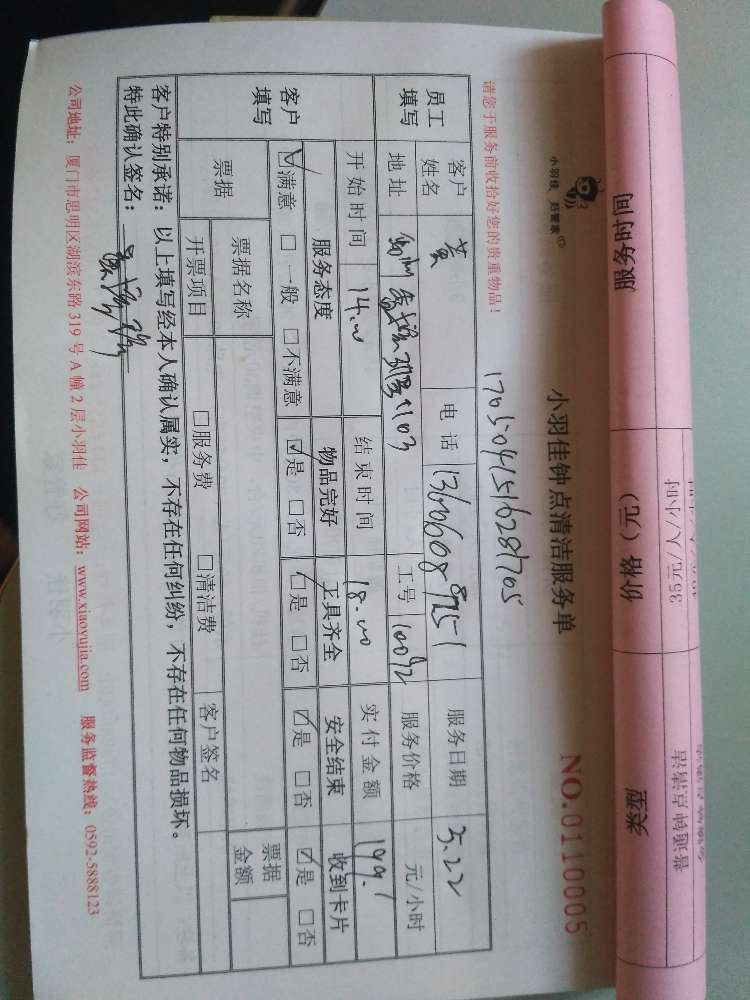 小羽佳 好管家
小羽佳钟点清洁服务单
NO.0110005
请您于服务前收拾好您的贵重物品!
1705041516281705
员工填写 客户姓名 黄 电话 服务日期 5.22
地址 1103 工号 10092 服务价格 元/小时
开始时间 14.00 结束时间 18.00 实付金额 199.1
客户填写 服务态度 物品完好 工具齐全 安全结束 收到卡片
☑满意 □一般 □不满意 ☑是 □否 ☑是 □否 ☑是 □否 ☑是 □否
票据 票据名称 票据金额
开票项目 □服务费 □清洁费 客户签名
客户特别承诺:以上填写经本人确认属实,不存在任何纠纷,不存在任何物品损坏。
特此确认签名:
公司地址:厦门市思明区湖滨东路 319 号 A 幢 2 层小羽佳 公司网站:www.xiaoyujia.com 服务监督热线:0592-5888123
服务时间 价格(元) 类型
35元/人/小时